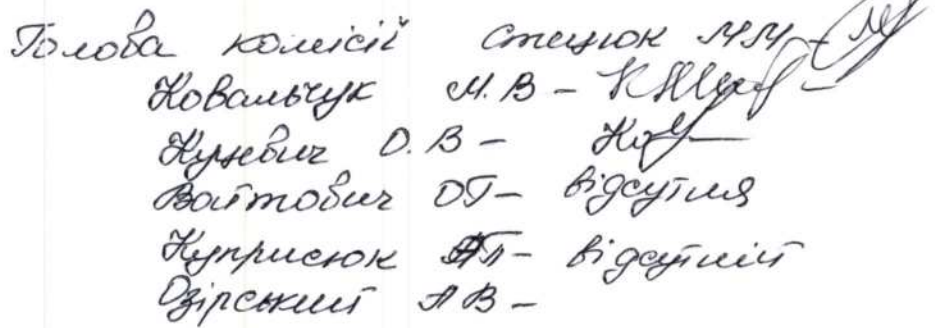 Голова комісії Стецюк М.М –
Ковальчук М. В –
Куневич О. В –
Войтович ОП – відсутня
Куприсюк АП – відсутній
Озірський АВ –